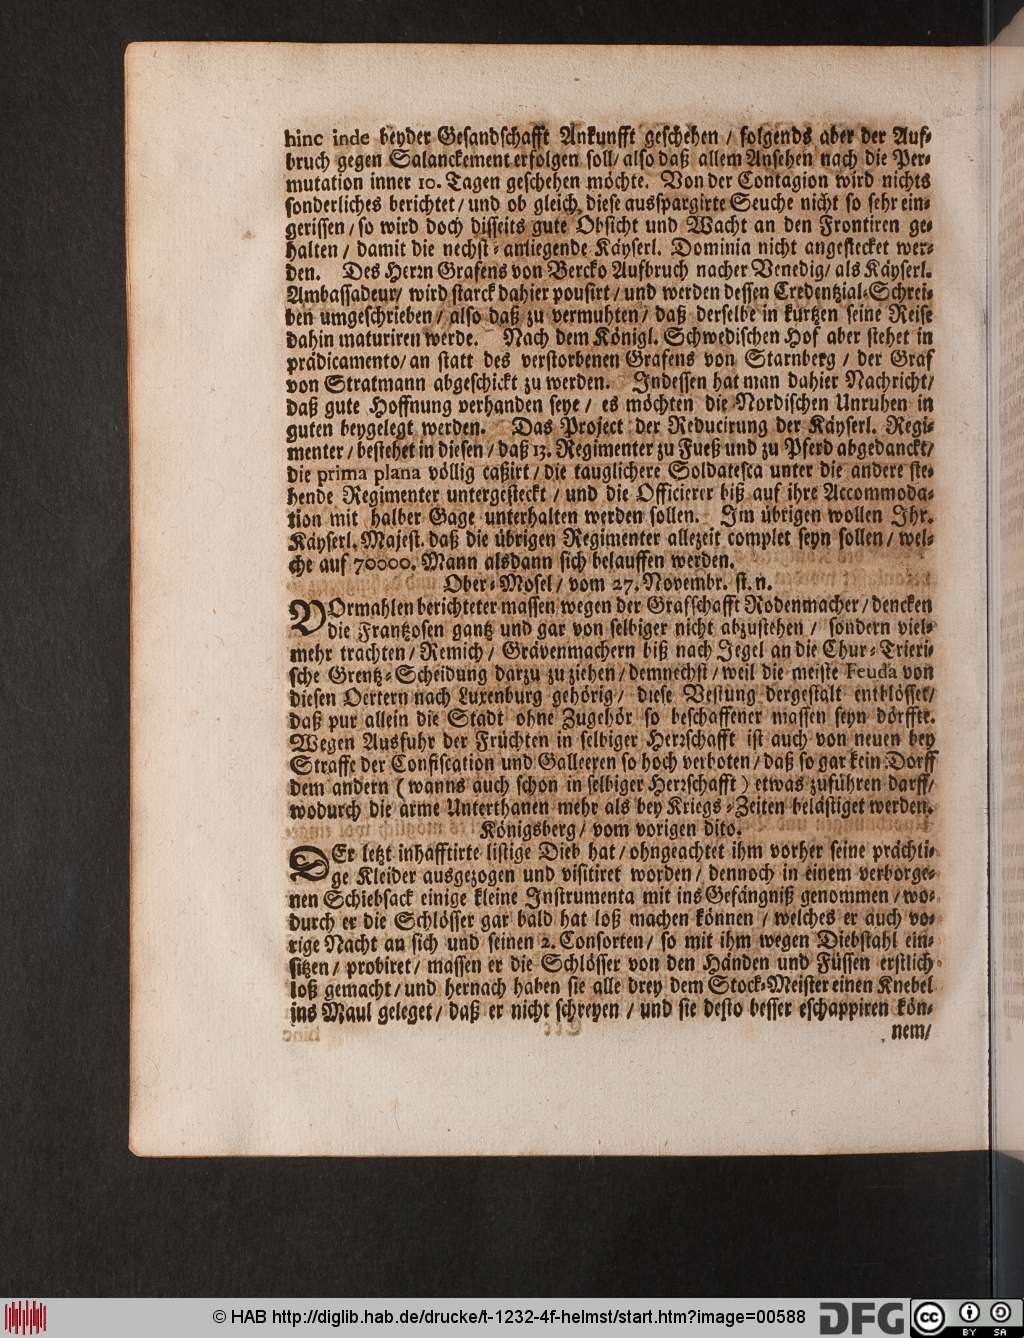 hinc inde beyder Gesandschafft Ankunfft geschehen / folgends aber der Auf-
bruch gegen Salanckement erfolgen soll / also daß allem Ansehen nach die Per-
mutation inner 10. Tagen geschehen möchte. Von der Contagion wird nichts
sonderliches berichtet / und ob gleich diese ausspargirte Seuche nicht so sehr ein-
gerissen / so wird doch disseits gute Obsicht und Wacht an den Frontiren ge-
halten / damit die nechst-anliegende Käyserl. Dominia nicht angestecket wer-
den. Des Herrn Grafens von Bercko Aufbruch nacher Venedig / als Käyserl.
Ambassadeur / wird starck dahier pousirt / und werden dessen Credentzial-Schrei-
ben umgeschrieben / also daß zu vermuhten / daß derselbe in kurtzen seine Reise
dahin maturiren werde. Nach dem Königl. Schwedischen Hof aber stehet in
prädicamento / an statt des verstorbenen Grafens von Starnberg / der Graf
von Stratmann abgeschickt zu werden. Indessen hat man dahier Nachricht /
daß gute Hoffnung verhanden seye / es möchten die Nordischen Unruhen in
guten beygelegt werden. Das Project der Reducirung der Käyserl. Regi-
menter / bestehet in diesen / daß 13. Regimenter zu Fueß und zu Pferd abgedanckt /
die prima plana völlig caßirt / die tauglichere Soldatesca unter die andere ste-
hende Regimenter untergesteckt / und die Officierer biß auf ihre Accommoda-
tion mit halber Gage unterhalten werden sollen. Im übrigen wollen Ihr.
Käyserl. Majest. daß die übrigen Regimenter allezeit complet seyn sollen / wel-
che auf 70000. Mann alsdann sich belauffen werden.
Ober-Mosel / vom 27. Novembr. st. n.
VOrmahlen berichteter massen wegen der Grafschafft Rodenmacher / dencken
die Frantzosen gantz und gar von selbiger nicht abzustehen / sondern viel-
mehr trachten / Remich / Grävenmachern biß nach Jegel an die Chur-Trieri-
sche Grentz-Scheidung darzu zu ziehen / demnechst / weil die meiste Feuda von
diesen Oertern nach Luxenburg gehörig / diese Vestung dergestalt entblösset /
daß pur allein die Stadt ohne Zugehör so beschaffener massen seyn dörffte.
Wegen Ausfuhr der Früchten in selbiger Herrschafft ist auch von neuen bey
Straffe der Confiscation und Galleeren so hoch verboten / daß so gar kein Dorff
dem andern ( wanns auch schon in selbiger Herrschafft ) etwas zuführen darff /
wodurch die arme Unterthanen mehr als bey Kriegs-Zeiten belästiget werden.
Königsberg / vom vorigen dito.
DEr letzt inhafftirte listige Dieb hat / ohngeachtet ihm vorher seine prächti-
ge Kleider ausgezogen und visitiret worden / dennoch in einem verborge-
nen Schiebsack einige kleine Instrumenta mit ins Gefängniß genommen / wo-
durch er die Schlösser gar bald hat loß machen können / welches er auch vo-
rige Nacht an sich und seinen 2. Consorten / so mit ihm wegen Diebstahl ein-
sitzen / probiret / massen er die Schlösser von den Händen und Füssen erstlich
loß gemacht / und hernach haben sie alle drey dem Stock-Meister einen Knebel
ins Maul geleget / daß er nicht schreyen / und sie desto besser eschappiren kön-
nem /
© HAB http://diglib.hab.de/drucke/t-1232-4f-helmst/start.htm?image=00588
DFG
cc
BY SA